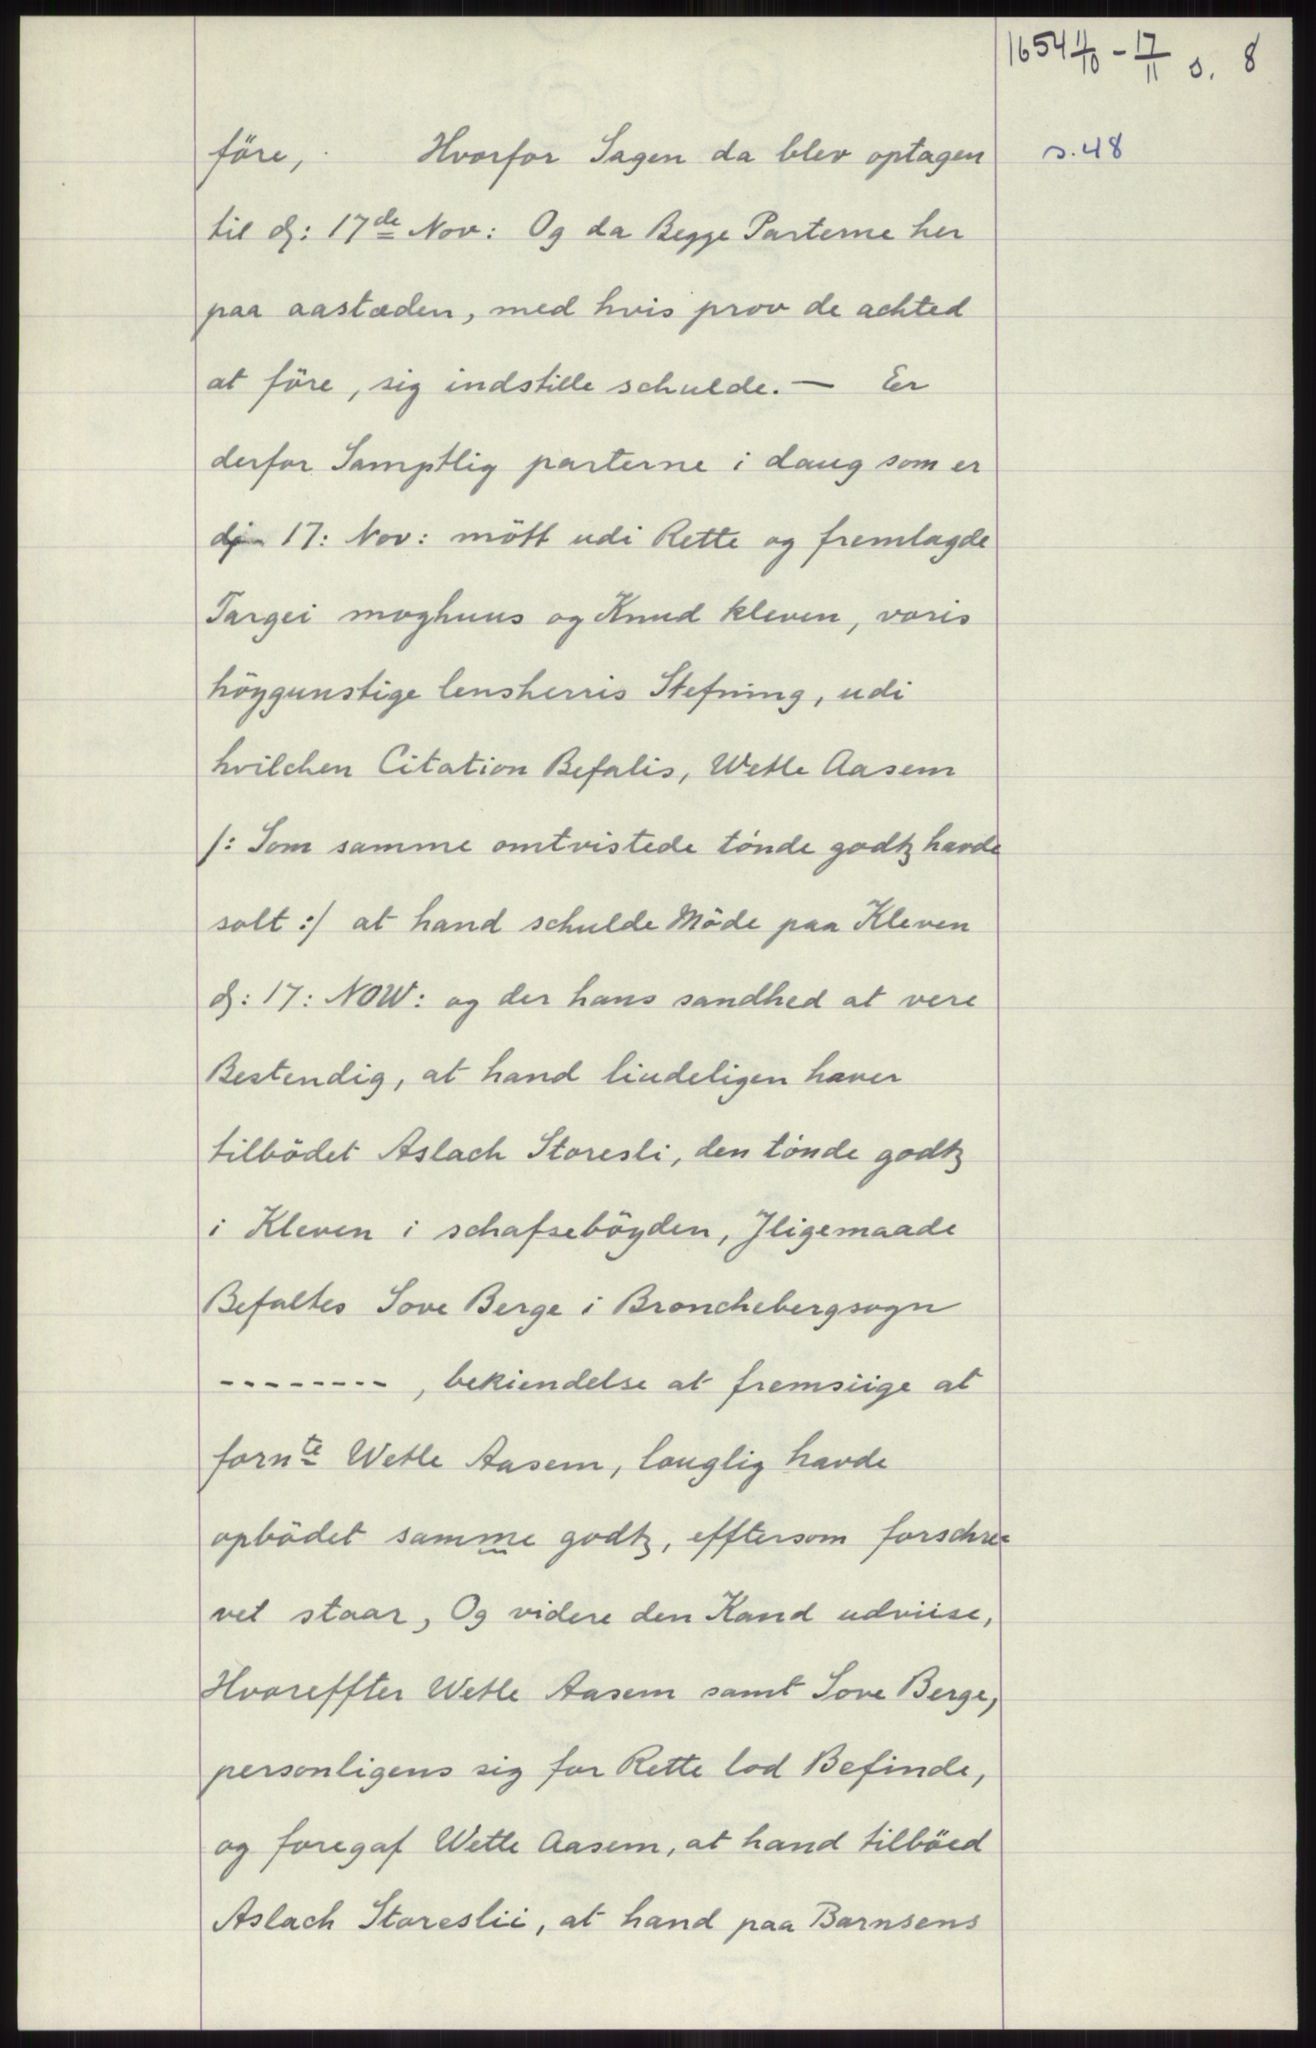 1654 11/10 - 17/11 s. 8
före, Hvorfor Sagen da blev optagen
s. 48
til dj: 17de Nov: Og da Begge Parterne her
paa aastæden, med hvis prov de achted
at före, sig indstille schulde. — Er
derfor Samptlig parterne i daug som er
dj 17: Nov: mött udi Rette og fremlagde
Targei moghuus og Knud kleven, voris
höygunstige lensherris Stefning, udi
hvilchen Citation Befalis, Wetle Aasem
/: Som samme omtvistede tönde godtz havde
solt :/ at hand schulde Möde paa Kleven
dj: 17: NOW: og der hans sandhed at vere
Bestendig, at hand liudeligen haver
tilbödet Aslach Storesli, den tönde godtz
i Kleven i schafsebögden, Jligemaade
Befaltes Sove Berge i Bronchebergsogn
--------, bekiendelse at fremsiige at
fornte Wetle Aasem, louglig havde
opbödet samme godtz, efftersom forschre=
vet staar, Og videre den Kand udviise,
Hvoreffter Wetle Aasem samt Sove Berge,
personligens sig for Rette lod Befinde,
og foregaf Wetle Aasem, at hand tilböed
Aslach Storeslii, at hand paa Barnsens